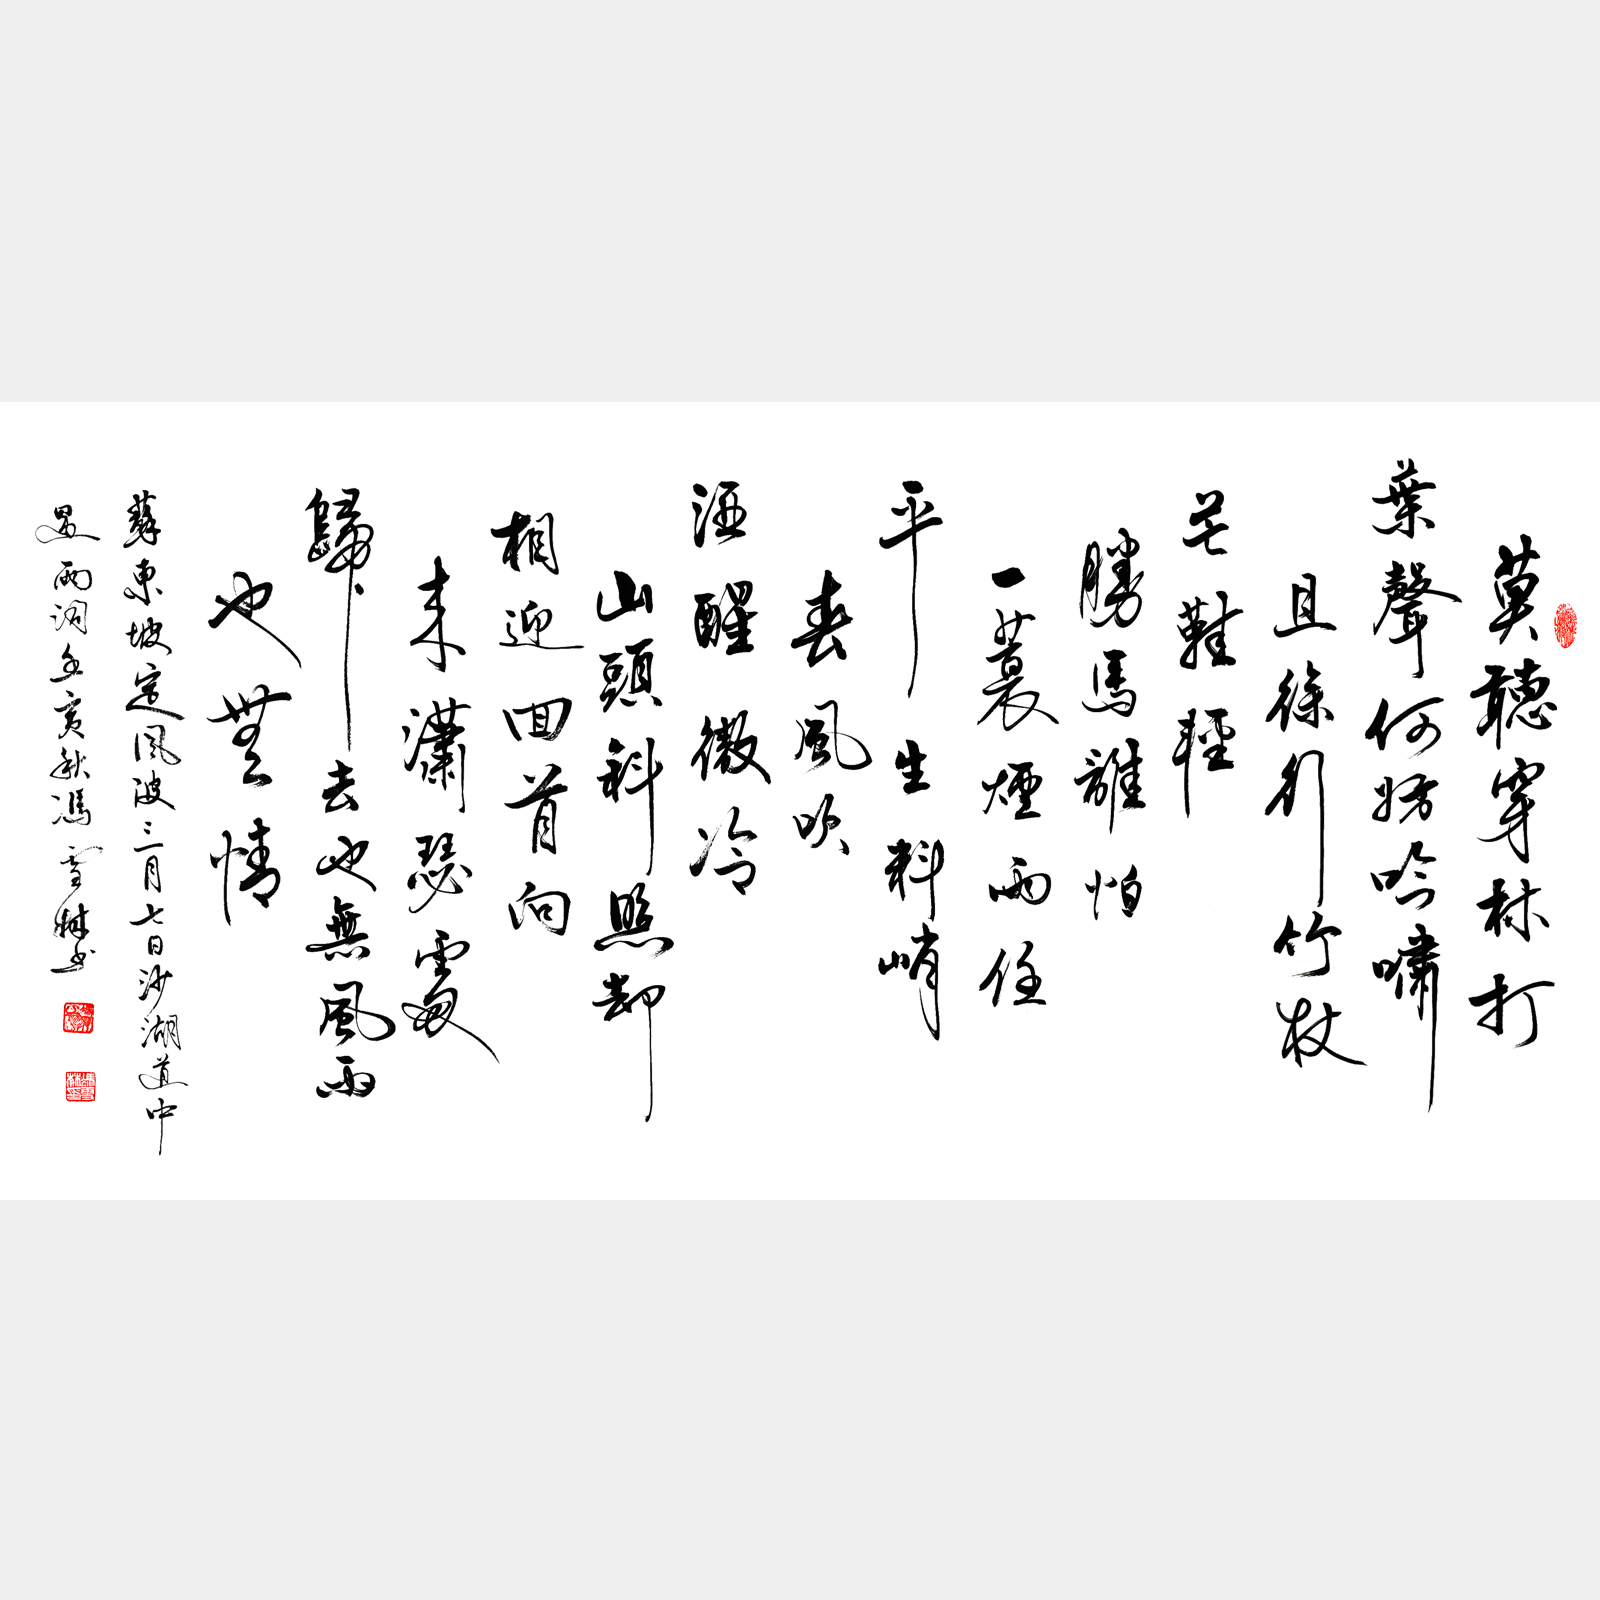 莫聽穿林打
葉聲何妨吟嘯
且徐行竹杖
芒鞋輕
勝馬誰怕
一蓑煙雨任
平生料峭
春風吹
酒醒微冷
山頭斜照却
相迎回首向
来瀟瑟處
歸去也無風雨
也無情
蘇東坡定風波三月七日沙湖道中
遇雨詞亥秋馮雪林书